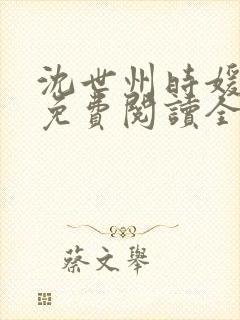 沈世州時媛
免費閱讀全
蔡文舉